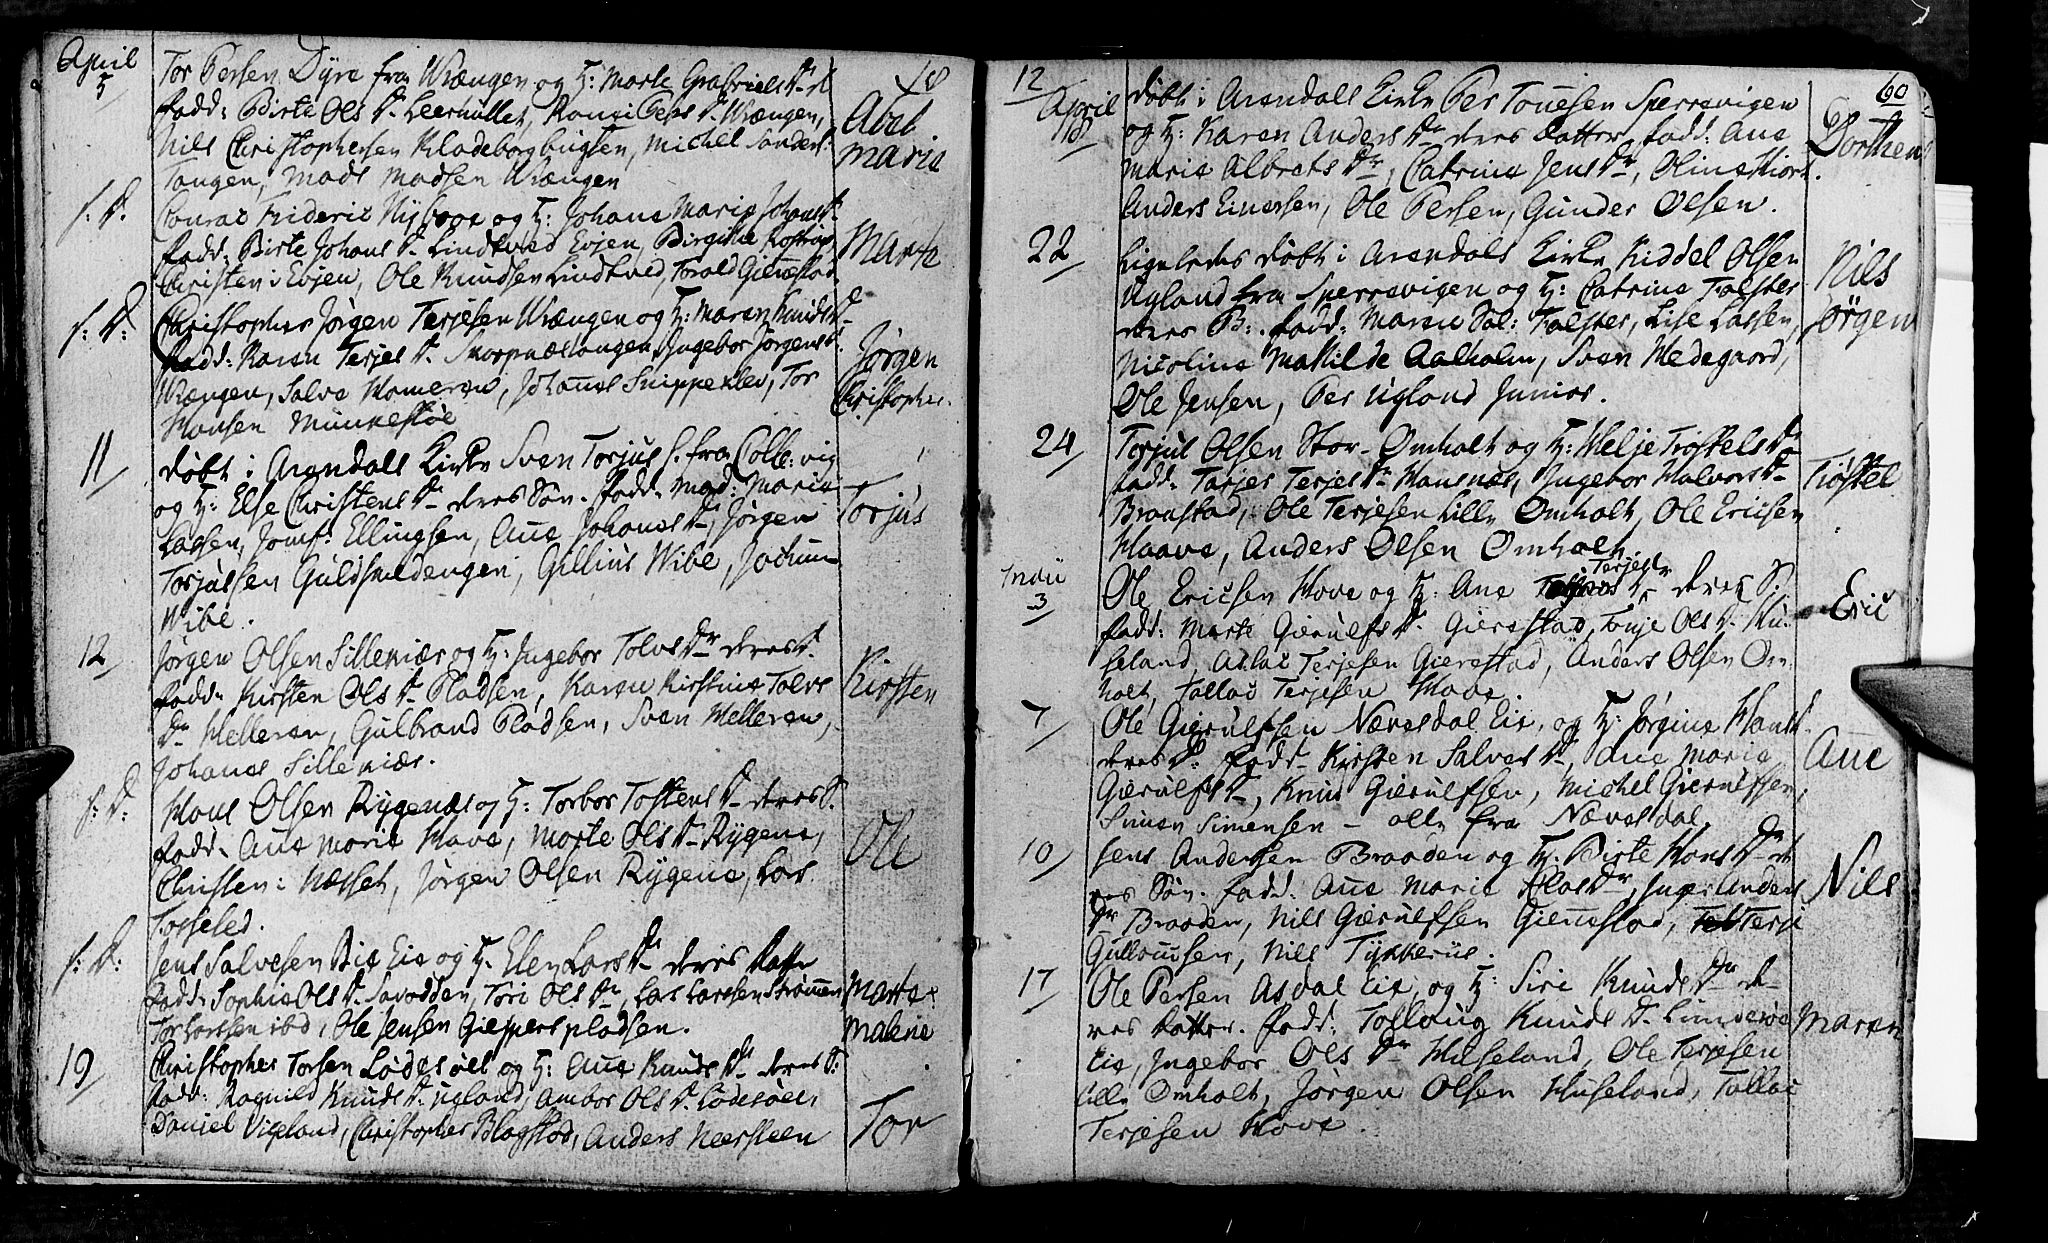 April
5
Tor Persen Dyre fra Wrængen og H: Marte Gabriels D. d
fadd: Birte Ols D. Leermullet, Rongi Pers D. Wrængen,
Nils Christophersen Kladeborgbugten, Michel Sanders.
Tangen, Mads Madsen Wrængen
18
Abel
Marie
s: D.
Conrat Frideric Nyboge og H: Johane Marie Johans D.
fadd: Birte Johans D. Lindtved Evjen, Birgithe
Christen i Evjen, Ole Knudsen Lindtved, Torald Gierrestad
Marte
s: D:
Christopher Jørgen Terjesen Wrængen og H: Maren Knuds D
fadd: Karen Terjes D. Skarpnæstangen, Ingebor Jørgens D.
Wrængen, Salve Homeren, Johanes Snippeklev, Tor
Hansen Munkestøe
Jørgen
Christopher.
11
døbt i Arendals Kirke Sven Torjus S. fra Colle:vig
og H: Else Christens D. deres Søn. fadd. Mad: Marie
Lassen, Jomf: Ellingsen, Ane Johanes D., Jørgen
Torjussen Guldsmedengen, Gillius Wibe, Jochum
Wibe.
Torjus
12
Jørgen Olsen Sillekiær og H: Ingebor Tolvs Dr deres D.
fadd. Kirsten Ols D. Pladsen, Karen Kirstine Tolvs
Dr Melleren, Gulbrand Pladsen, Sven Melleren,
Johanes Sillekiær.
Kirsten
s: D:
Hans Olsen Rygenæs og H: Torbor Tostens D. deres S.
fadd. Ane Marie Have, Marte Ols D. Rygene,
Christen i Næsset, Jørgen Olsen Rygene, Lars
Tosseled.
Ole
s: D:
Jens Salvesen Bie Eie og H. Elen Lars D. deres Datter
fadd. Sophie Ols D. Savodden, Tori Ols Dr, Lars Larssen Strømmen
Tor Larssen ibd, Ole Jensen Gieppers pladsen.
Marte
Malene
19
Christopher Torsen Lødesøel og H: Ane Knuds D. deres S:
fadd: Ragnild Knuds D. Ugland, Ambor Ols D. Lødesøel,
Daniel Vigeland, Christopher Blagstad, Anders Neersteen
Tor
12
April
18
døbt i Arendals Kirke Per Tovesen Sperrevigen
og H: Karen Anders Dr deres Datter, fadd: Ane
Marie Albrets Dr, Catrine Jens Dr, Oline
Anders Einersen, Ole Persen, Gunder Olsen.
60
Dorthea
22
Ligeledes døbt i Arendals Kirke Kiddel Olsen
Ugland fra Sperrevigen og H: Catrine Falster
deres B:. fadd: Maren Sal: Falster, Lise Lassen,
Nicoline Mathilde Aalholm, Sven Hedegaard,
Ole Jensen, Per Ugland Junior.
Nils
Jørgen
24
Terjus Olsen Stor-Omholt og H: Helje Trøstels D.
fadd: Tarjer Terjes Dr Hansnæs, Ingebor Halvors D.
Braastad, Ole Terjesen Lille Omholt, Ole Ericsen
Haave, Anders Olsen Omholt.
Trøstel
Maii
3
Ole Ericsen Hove og H: Ane Terjes D. deres S.
fadd: Marte Gierulfs D. Gierestad, Tonje Ols D. Hu-
seland, Aslac Terjesen Gierestad, Anders Olsen Om-
holt, Tallac Terjesen Have.
Eric
7
Ole Gierulfsen Næresdal Eie, og H: Jørgine Hans
deres D. fadd. Kirsten Salves D., Ane Marie
Gierulfs D., Knud Gierulfsen, Michel Gierulfsen,
Simen Simensen – alle fra Næresdal.
Ane
10
Jens Andersen Braaden og H. Birte Hans D. de
res Søn. fadd. Ane Marie Olas Dr, Inger Anders
Dr Braaden, Nils Gierulfsen Gierrestad, Terje
Gulloufsen, Nils Tykkerus.
Nils
17
Ole Persen Asdal Eie, og H: Siri Knuds Dr de-
res Datter. fadd: Tallaug Knuds D. Lindtvæd
Eie, Ingebor Ols Dr Huseland, Ole Terjesen
Lille Omholt, Jørgen Olsen Huseland, Tallac
Terjesen Hove.
Maren